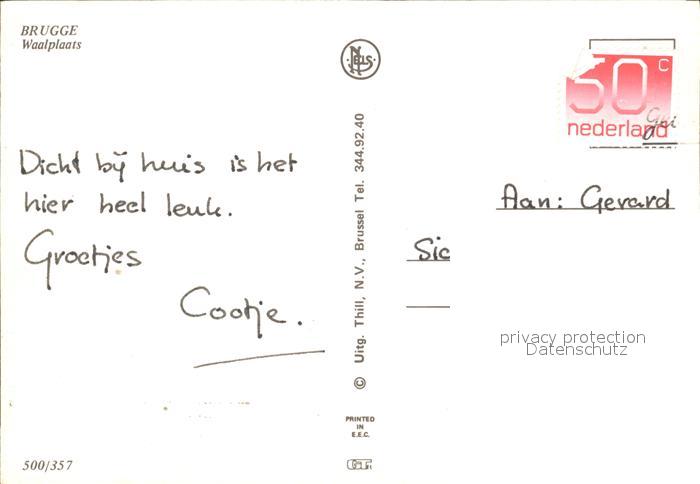 BRUGGE
Waalplaats
NELS
50 c
nederland
Dicht bij huis is het
hier heel leuk.
Groetjes
Cootje.
Aan: Gerard
Sic
privacy protection
Datenschutz
© Uitg. Thill, N.V., Brussel Tel. 344.92.40
PRINTED
IN
E.E.C.
500/357